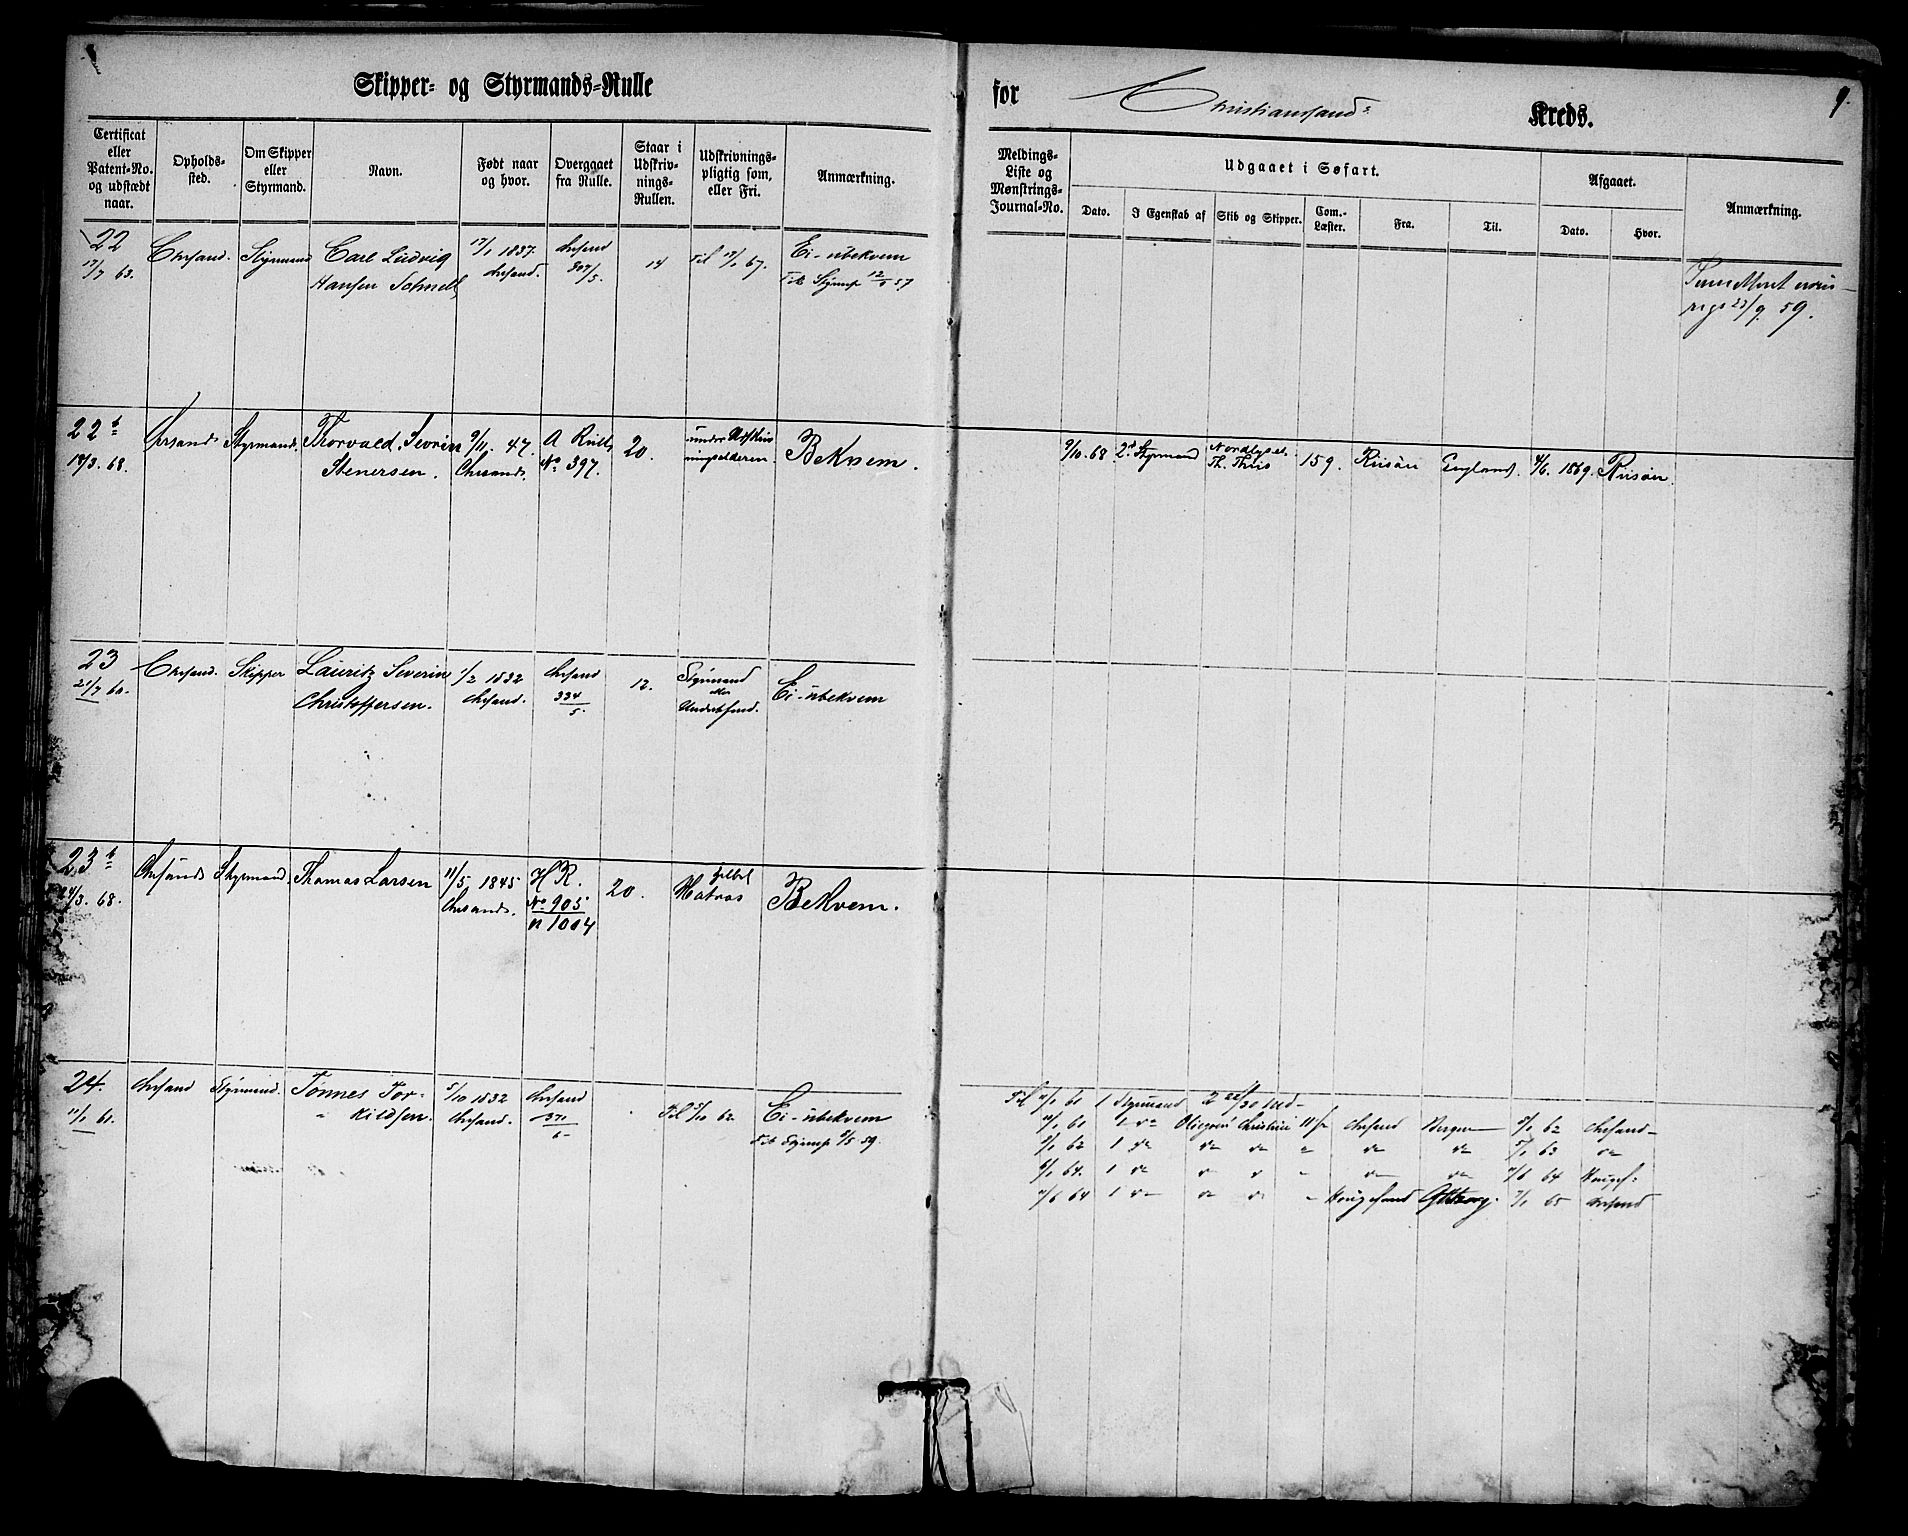 Skipper- og Styrmands-Rulle for Christianssands Kreds.
9.
Certificat eller Patent-No. og udstædt naar.
Opholds-sted.
Om Skipper eller Styrmand.
Navn.
Født naar og hvor.
Overgaaet fra Rulle.
Staar i Udskriv-nings-Rullen.
Udskrivnings-pligtig som, eller Fri.
Anmærkning.
Meldings-Liste og Mønstrings-Journal-No.
Udgaaet i Søfart.
Dato.
I Egenskab af
Skib og Skipper.
Com.-Læster.
Fra.
Til.
Afgaaet.
Dato.
Hvor.
Anmærkning.
22
17/7 63.
Chrsand.
Styrmand
Carl Ludvig
Hansen Schnell
17/1 1837.
Chrsand.
Chrsand
307/5.
14
Til 17/1 67.
Ei-ubekvem
Til Styrmp 12/1 57
23/9. 59.
22b
14/3. 68.
Chrsand
Styrmand.
Thorvald Severin
Stenersen.
9/11. 47.
Chrsand.
A Rull
No 397.
20.
under Udskriv
ningsalderen
Bekvem.
9/10. 68
2den Styrmand
Nordlyset.
Th. Thiis
159.
Riisøer
England.
4/6. 1869.
Riisøer.
23
21/7 60.
Chrsand.
Skipper
Lauritz Severin
Christoffersen.
1/2 1832
Chrsand.
Chrsand
334
5.
12.
Styrmand
eller
Underofficer.
Ei-ubekvem
23b
24/3. 68.
Chrsand
Styrmand.
Thomas Larsen
11/5 1845
Chrsand.
HR.
No 905
n 1004
20.
helbef
Matros
Bekvem.
24.
11/1 61.
Chrsand
Styrmand.
Tønnes Tor-
kildsen.
5/10 1832
Chrsand.
Chrsand
371
5
Til 5/10 62
Ei-ubekvem
Til Styrmp 9/5 59.
Til 11/1 61 1 Styrmand
11/1 61 1 do Oliegren Christine 11 Chrsand Bergen 9/1 62 Chrsand
9/1 62 1 do do do " do do 5/1 63 do
6/1 64. 1 do do do " do do 7/6 64 Haugesf:
7/6 64 1 do do do " Haugesund 7/1 65 Chrsand